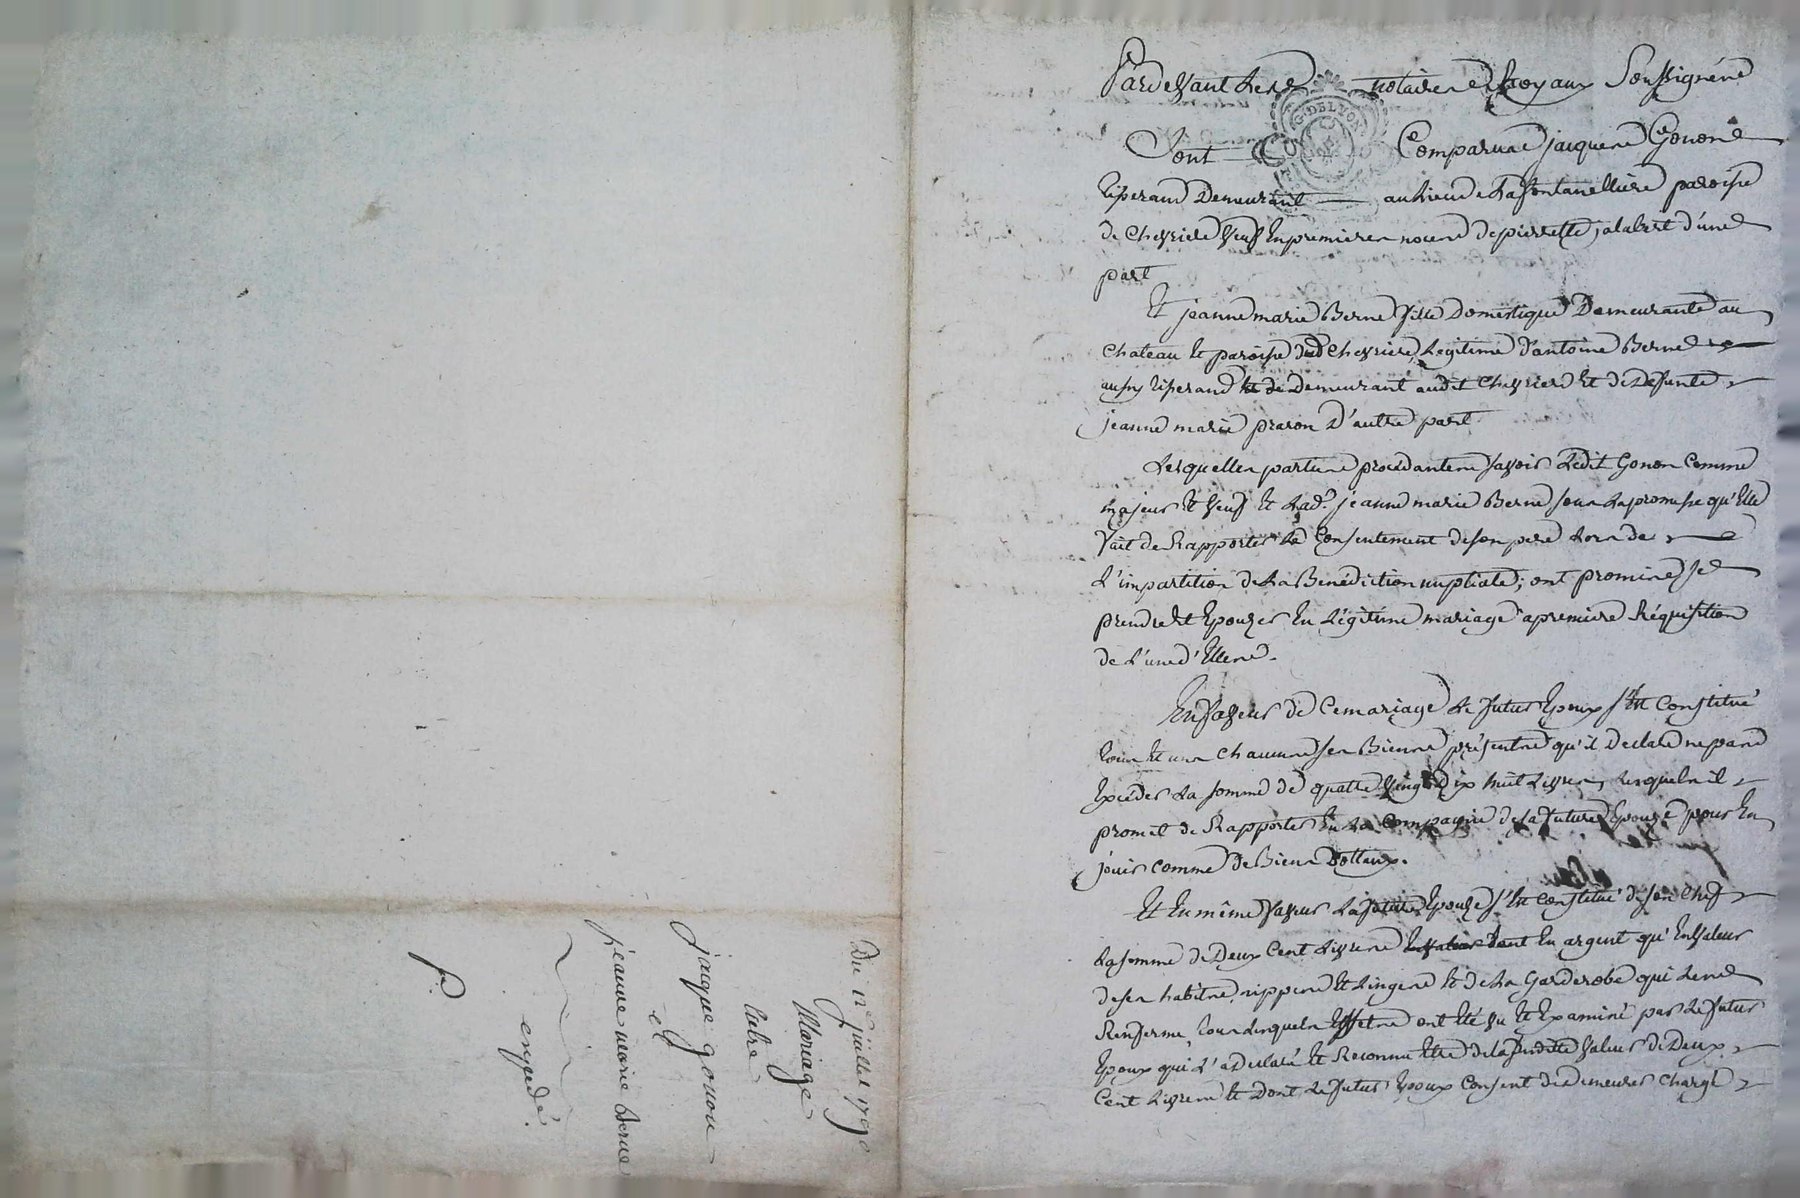 Du 12e juillet 1790
Mariage
Entre
jacque gonon
et
jeanne marie Berne
expedé.
Pardevant Les notaires Royaux Soussignés
G. DE LYON
Sont Comparus jacques Gonon
tisserand Demeurant au Lieu de Lafontanelliere paroisse
de Chevriere veuf En premieres noces de pierrette jalabert d'une
part
Et jeanne marie Berne fille Domestique Demeurante au
Chateau et paroisse dud Chevriere, Legitime d'antoine Berne
aussy tisserand Demeurant audit Chevrier Et de Defunte
jeanne marie praron D'autre part
Lesquelles parties procedantes savoir Ledit Gonon Comme
majeur Et veuf Et Lade. jeanne marie Berne sous La promesse qu'Elle
fait de Rapporter Le Consentement de son pere Lors de
L'impartition de La Benédiction nuptiale; ont promis Se
prendre Et Epouzer En Légitime mariage a premiere Réquisition
de L'une d'Elles.
En faveur de Ce mariage Le futur Epoux s'Est Constitué
tous Et uns Chacuns ses Biens présents qu'il Declare ne pas
Excéder La somme de quatre vingt dix huit Livres, Lesquels il
promet de Rapporter En La Compagnie de sa future Epouze pour En
jouir comme de Biens Dottaux.
Et En même faveur La future Epouze s'Est Constitué de son Chef
La somme de Deux Cent Livres tant En argent qu'En valeur
de ses habits, nippes Et Linges Et de La Garderobe qui Les
Renferme, tous Lesquels Effets ont Eté vu Et Examiné par Le futur
Epoux qui L'a declaré Et Reconnu Etre de La susdite valeur de Deux
Cent Livres Et Dont Le futur Epoux Consent de Demeurer Chargé